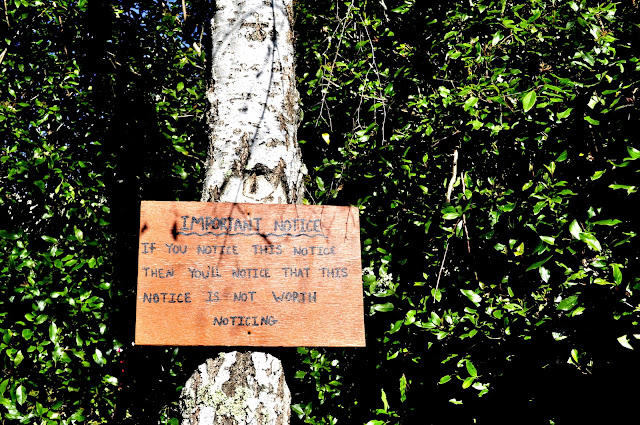 IMPORTANT NOTICE
IF YOU NOTICE THIS NOTICE
THEN YOU'LL NOTICE THAT THIS
NOTICE IS NOT WORTH
NOTICING